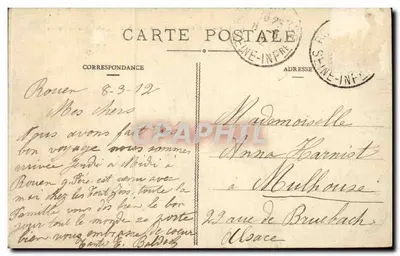 CARTE POSTALE
CORRESPONDANCE
ADRESSE
SEINE-INFRE
SEINE-INFRE
CPAPHIL
Rouen 8-3-12
Mes chers
Nous avons fait très
bon voyage nous sommes
arrivée Jeudi à Midi à
Rouen
moi chez les toute la
Famille vous dis bien le bon
jour tout le monde se porte
bien vous embrasse de coeur
Mademoiselle
Anna Harnist
à Mulhouse
22 rue de Bruebach
Alsace